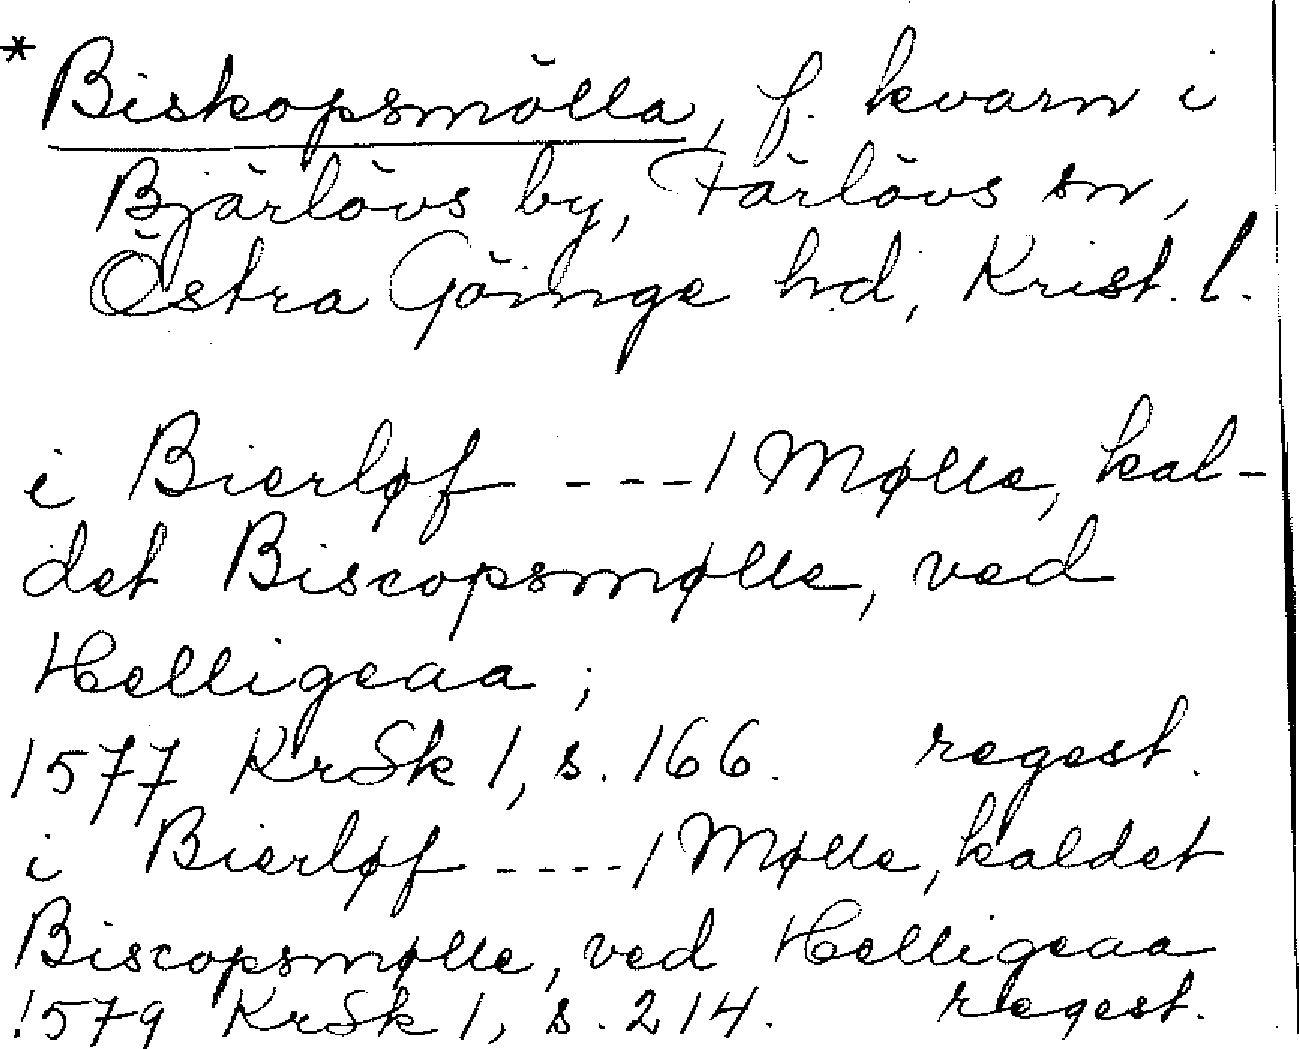 * Biskopsmölla, f. kvarn i
Bjärlövs by, Färlövs sn,
Östra Göinge hd, Krist. l.
i Bierløf --- 1 Mølle, kal-
det Biscopsmølle, ved
Helligeaa ;
1577 KrSk 1, s. 166. regest.
i Bierløf ---- 1 Mølle, kaldet
Biscopsmølle, ved Helligeaa
1579 KrSk 1, s. 214. regest.